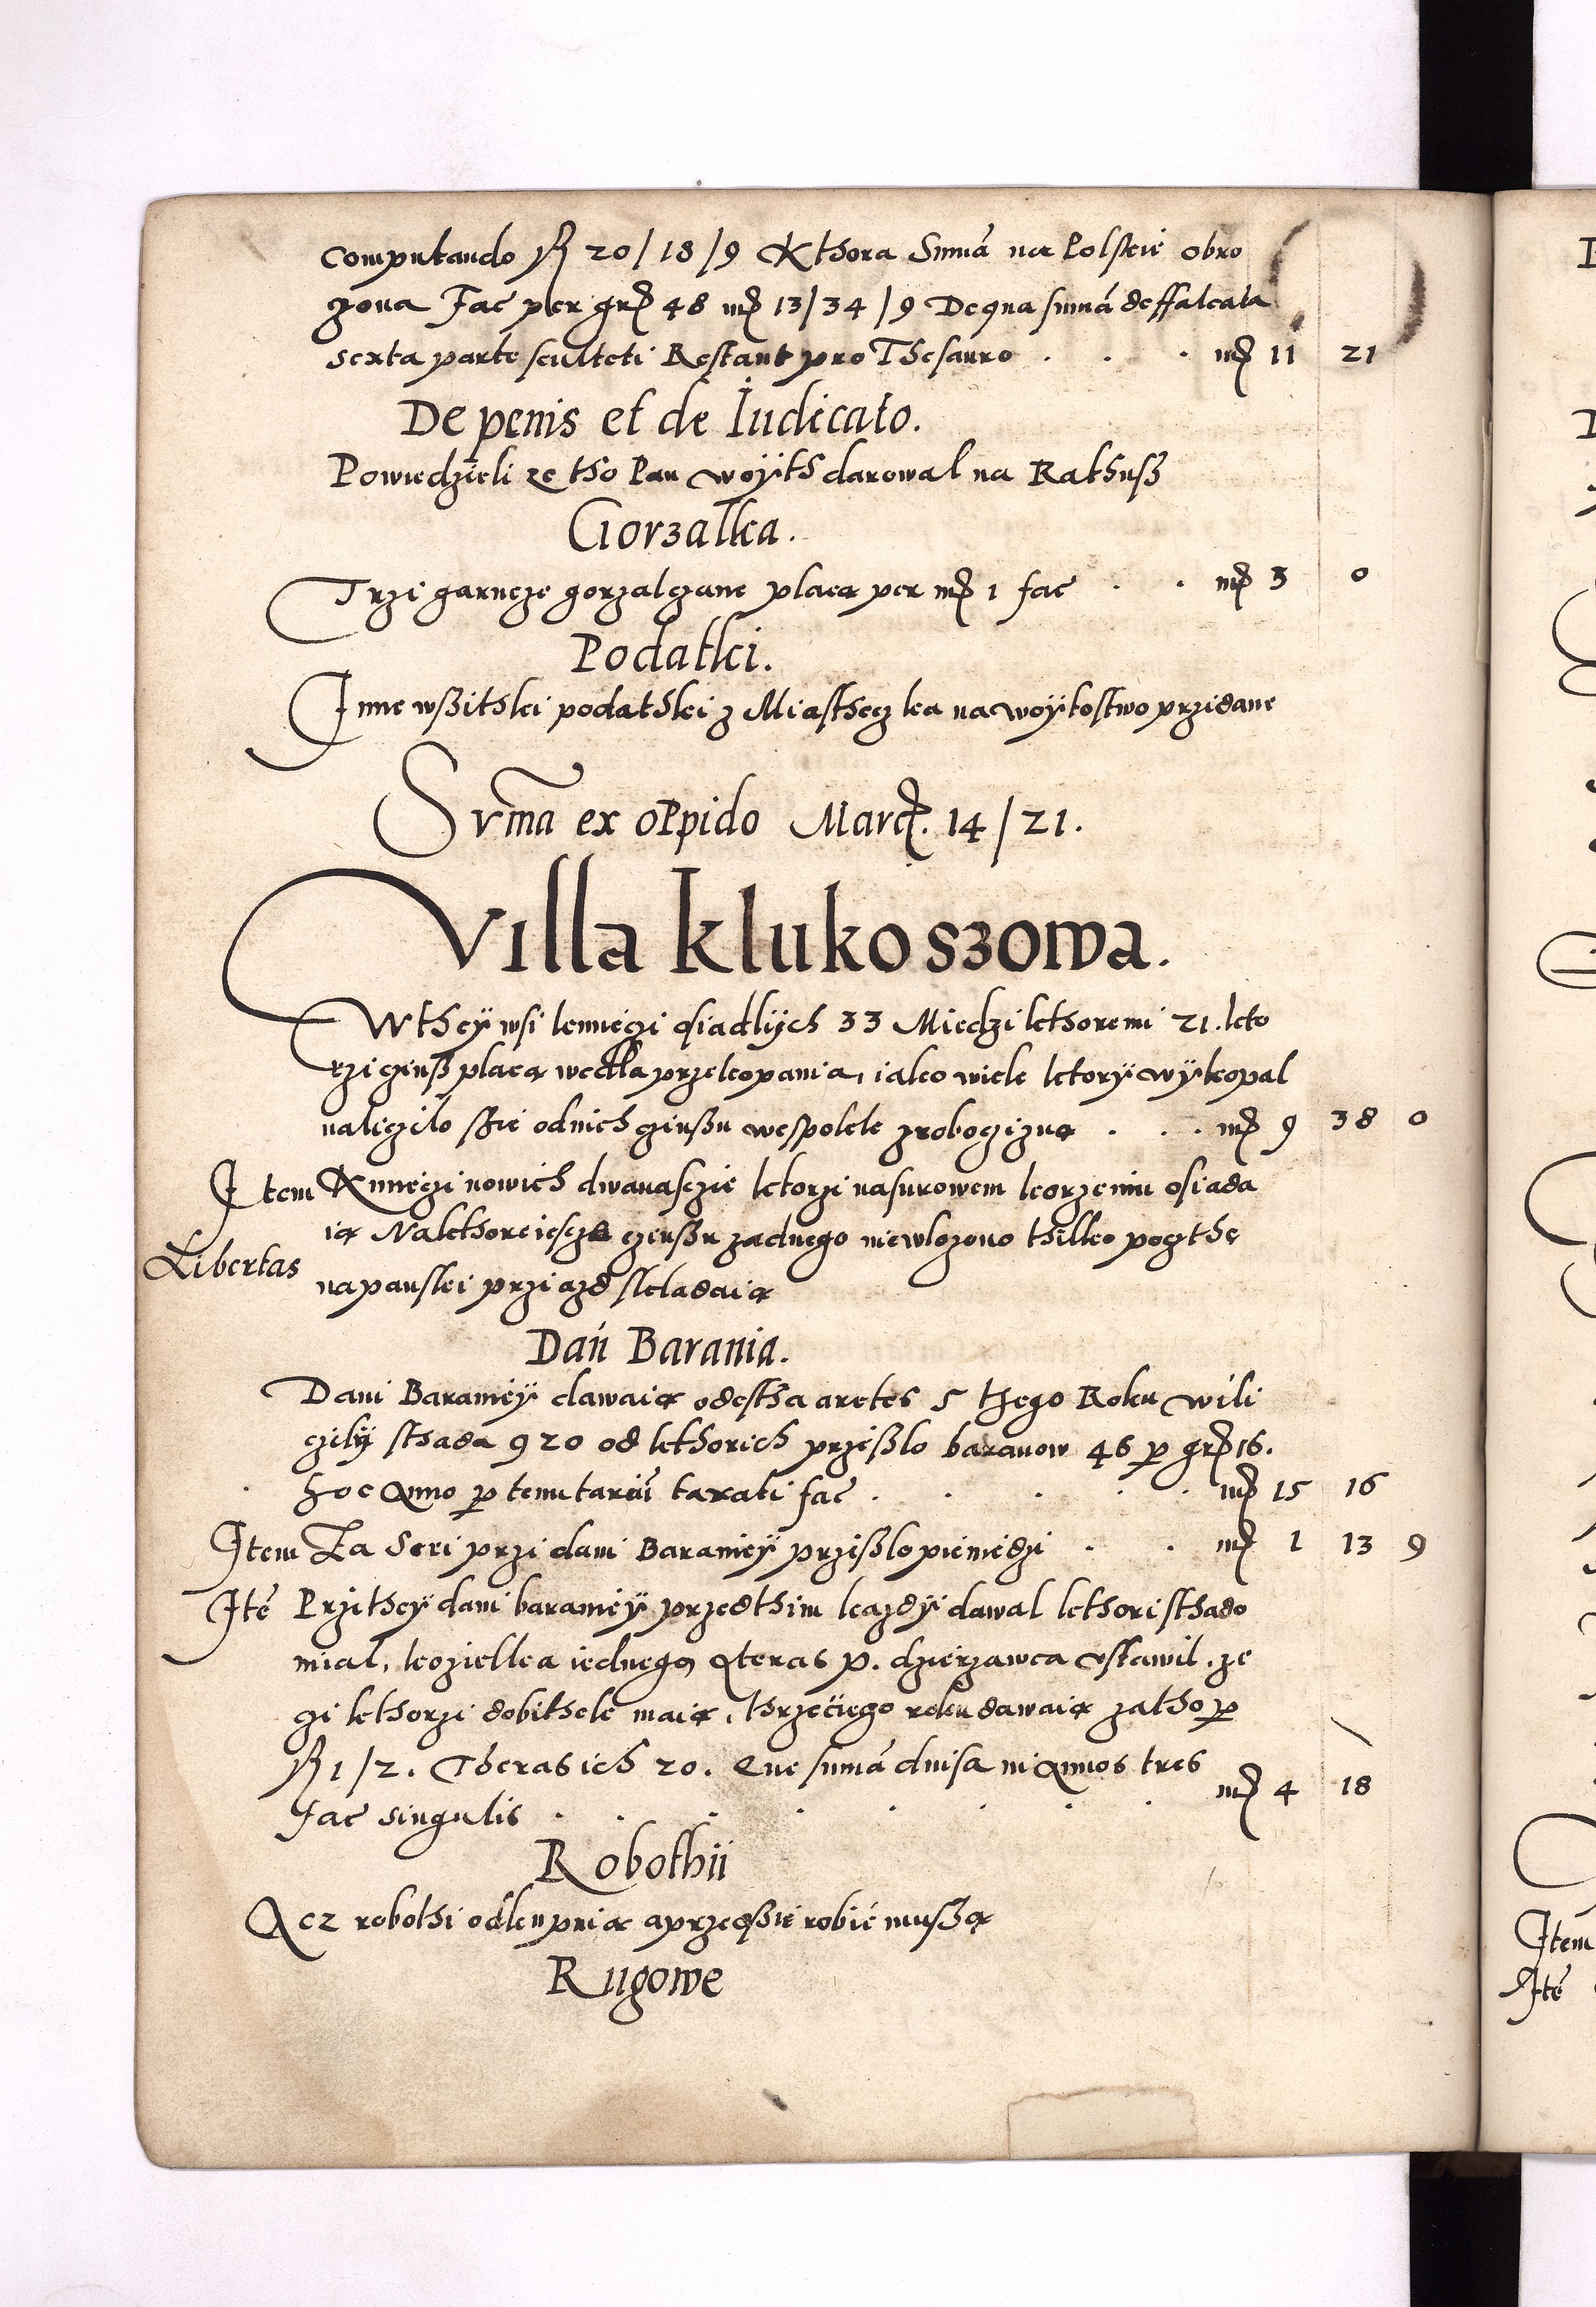 computando ꝶ 20/18/9 Kthora Sum̄a na Polskie obro
czona Fac̄ per gr̄ 48 mr̄ 13/34/9 De qua sum̄a deffalcata
sexta parte sculteti Restant pro Thesauro . . . mr̄ 11 21
De penis et de Iudicato.
Powiedzieli ze tho Pan woÿth darowal na Rathusz
Gorzalka.
Trzi garncze gorzalczane placą per mr̄ 1 fac̄ . . mr̄ 3 0
Podatki.
Inne wszithki podathki z Miasthecz ka na woÿtostwo przidane
Sum̄a ex oppido Marc̄. 14/21.
Villa klukoszowa.
W theÿ wsi kmieczi osiadlÿch 33 Miedzi kthoremi 21. kto
rzi czinsz placą wedlla przekopania, iako wiele ktorÿ wÿkopal
naliczilo szie od nich czinszu wespolek z robocizną . . . mr̄ 9 38 0
Item Kmieczi nowich dwanasczie ktorzi na surowem korzeniu osiada
ią Na kthore iescze czenszu zadnego nie wlozono thilko poczthę
Libertas
na panski przi azd skladaią
Dań Barania.
Dani Baranieÿ dawaią od estha aretes 5 thego Roku wili
czilÿ sthada 920 od kthorich prziszlo baranow 46 ꝑ gr̄ 16.
hoc Anno ꝑ tenutariu᷑ taxati fac̄ . . . . . mr̄ 15 16
Item Za Seri przi dani Baranieÿ prziszlo pieniedzi . . mr̄ 1 13 9
Ite᷑ Przi theÿ dani baranieÿ przedthim kazdÿ dawal kthori sthado
mial, kozielka iednego A teras p. dzierzawca vstawil, ze
czi kthorzi dobithek maią, thrzeciego roku dawaią za tho ꝑ
ꝶ 1/2. Theras ich 20. Que sum̄a diuisa in Annos tres
fac̄ singulis . . . . . . . . mr̄ 4 18
Robothii
Acz robothi odkupuią a przedszie robić muszą
Rugowe
Item
Ite᷑